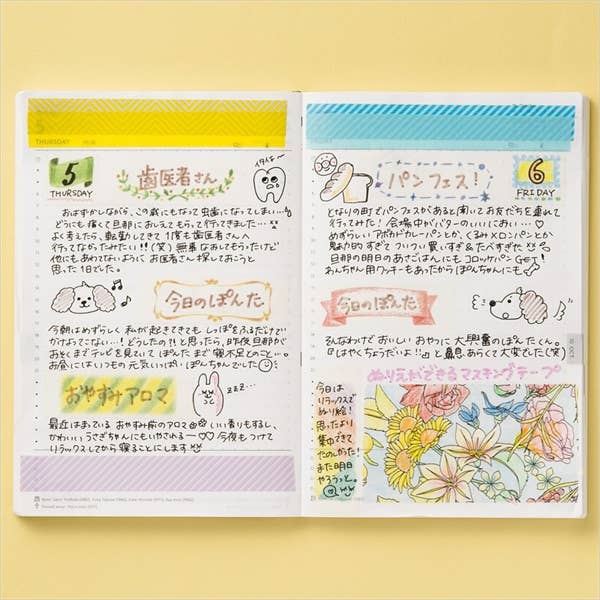 THURSDAY
5
THURSDAY
歯医者さん
イタイよ〜
おはずかしながら、この歳にもなって虫歯になってしまい…
どうにも痛くて旦那におしえてもらって行ってきました…
よく考えたら、転勤してきて1度も歯医者さんへ
行ってなかったみたい!!(笑)無事なおしてもらったけど
他にもあわてないように お医者さん探しておこうと
思った1日でした。
今日のぽんた
今朝はめずらしく 私が起きてきても しっぽをふるだけで
かけよってこない…! どうしたの!?と思ったら、昨夜旦那が
おそくまでテレビを見ていて ぽんたまで寝不足とのこと…。
お昼にはいつもの元気いっぱいぽんちゃんでした
おやすみアロマ
zzz...
最近はまっている おやすみ前のアロマ いい香りもするし、
かわいいうさぎちゃんにもいやされるー♡♡ 今夜もつけて
リラックスしてから寝ることにします
パンフェス!
6
FRIDAY
となりの町でパンフェスがあると聞いてお友だちを連れて
行ってみた! 会場中がバターのいいにおい…♡
めずらしいアボカドカレーパンとか、くるみ×メロンパンとか
魅力的すぎて ついつい 買いすぎ&たべすぎた
旦那の明日のあさごはんにも コロッケパンGET!
わんちゃん用クッキーもあったからぽんちゃんにも
今日のぽんた
そんなわけで おいしい おやつに 大興奮のぽんたくん。
『はやくちょうだいよ!!』と鼻息あらくて大変でした(笑)
ぬりえができるマスキングテープ
今日は
リラックスで
ぬり絵!
思ったより
集中できて
たのしかった!
また明日
やろうっと。